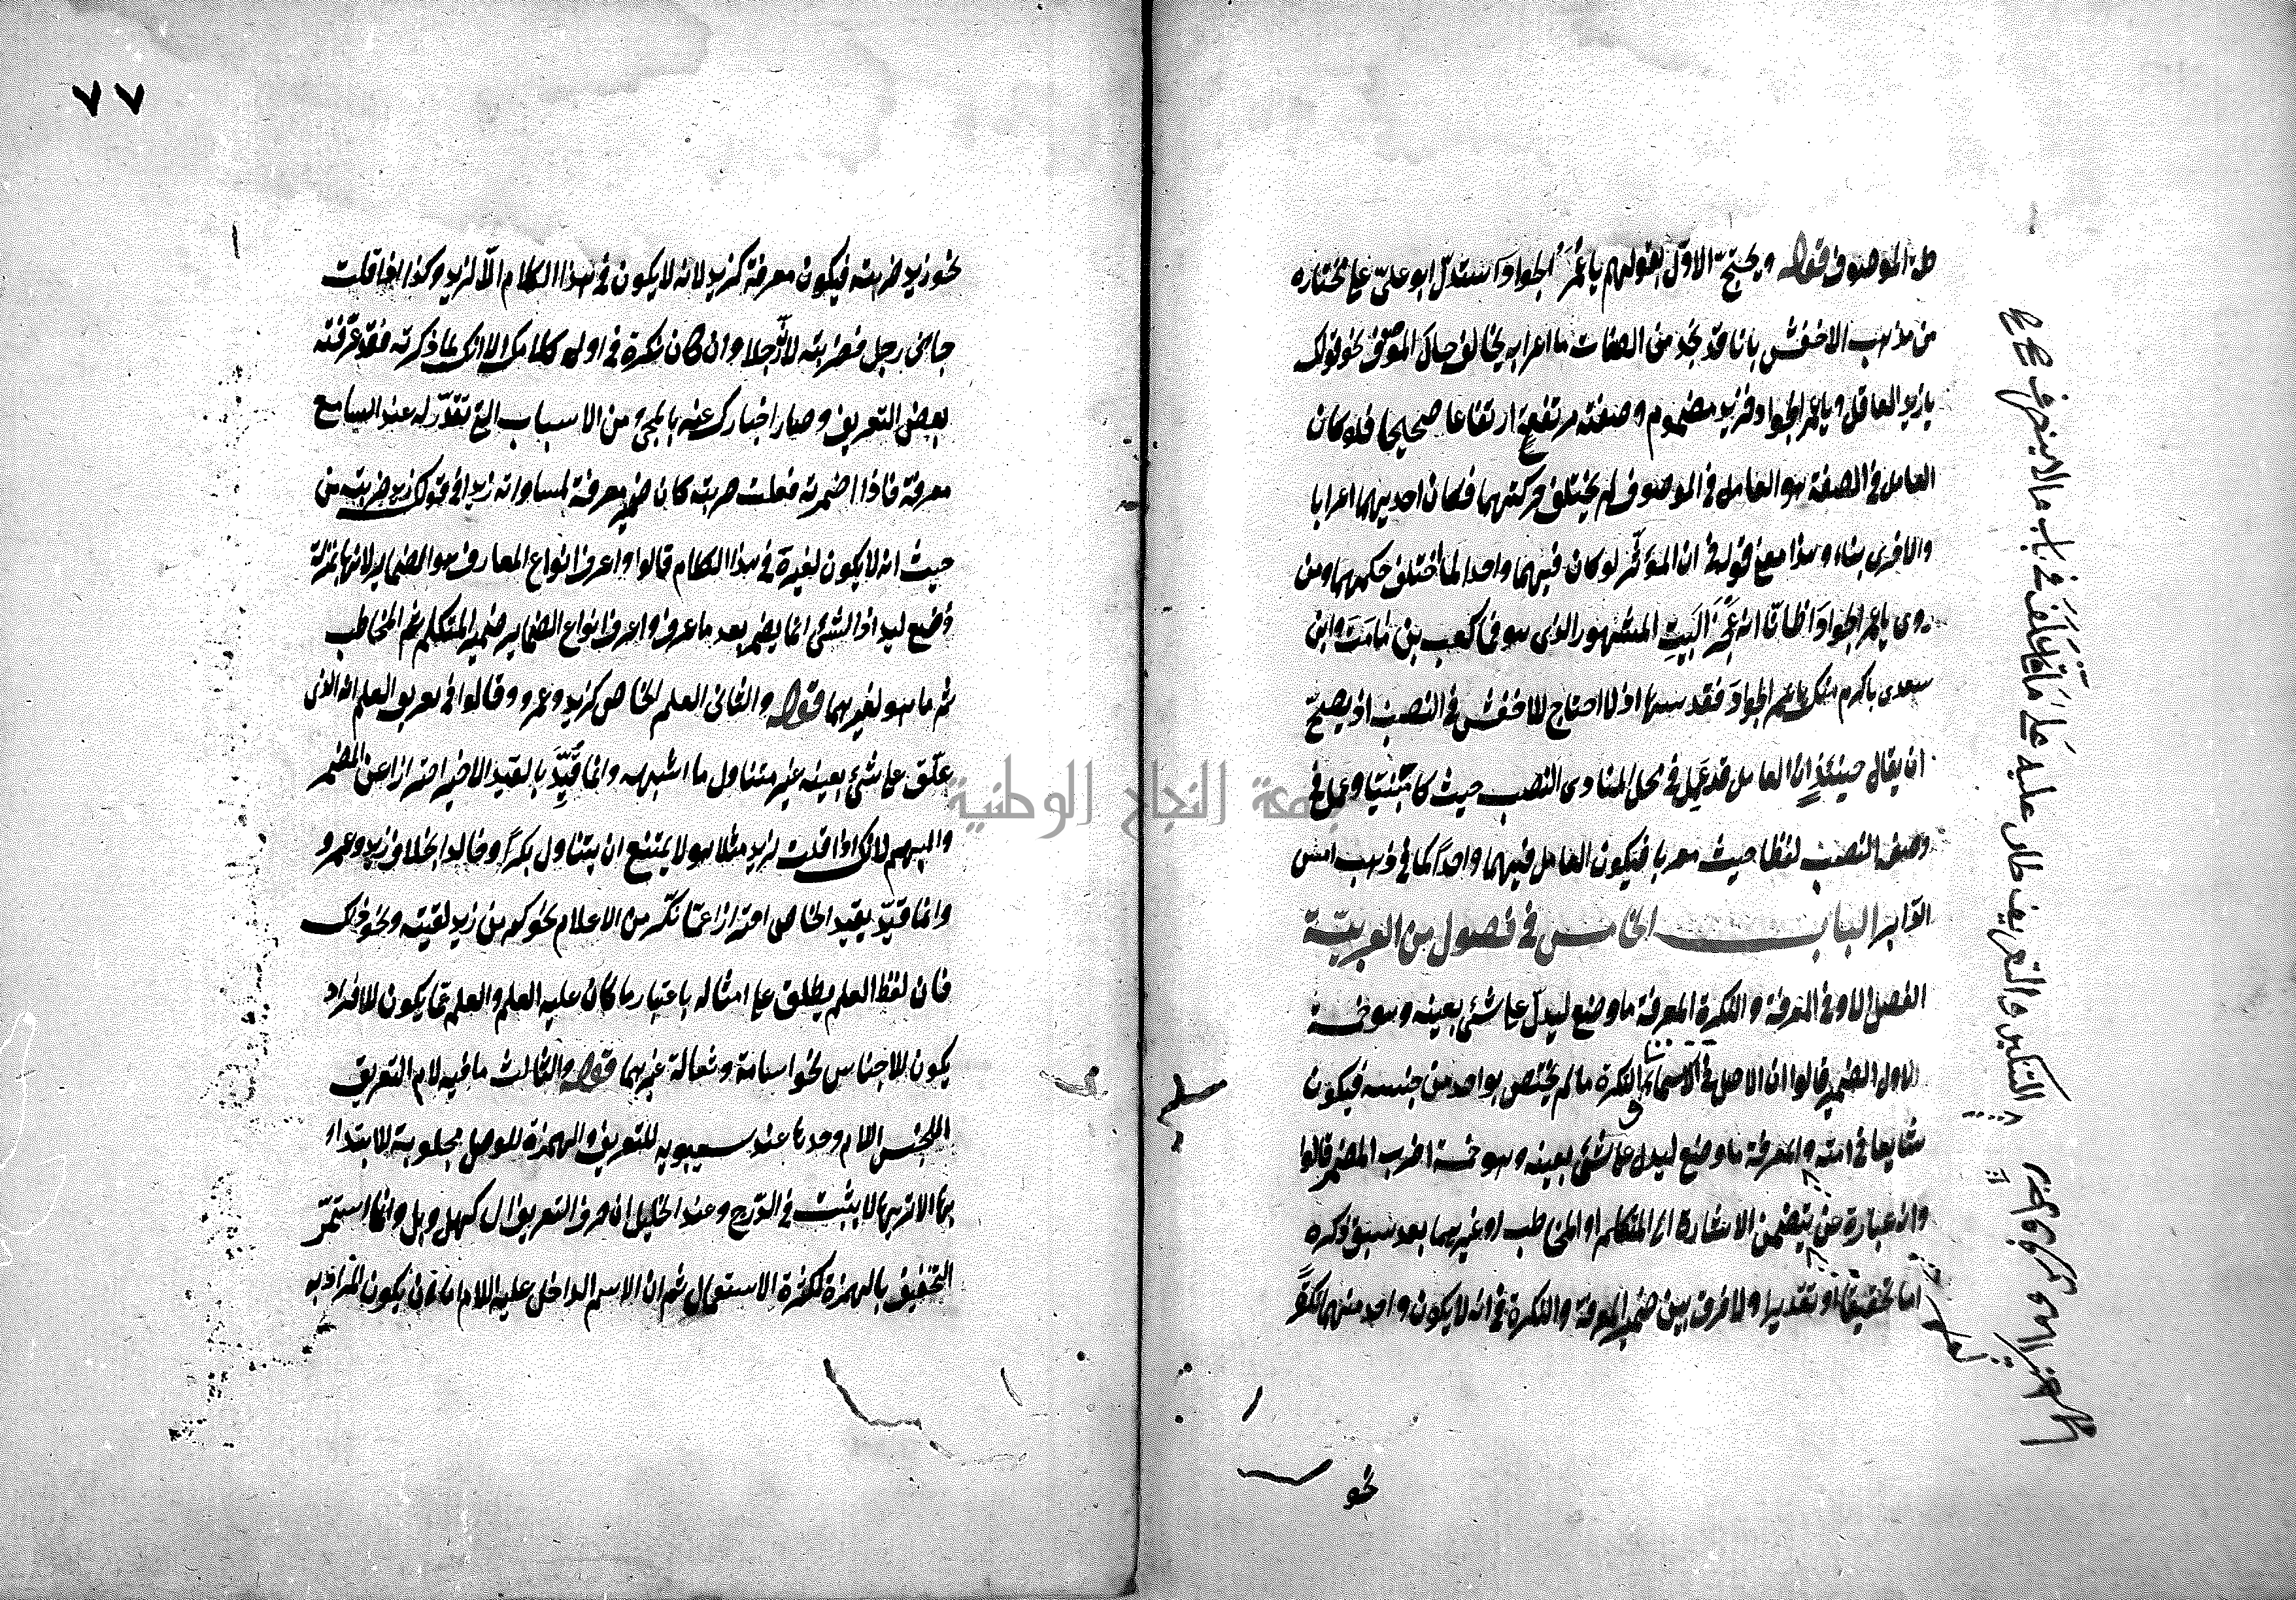 على الموصوف قوله ويحتج الاول بقولهم يا عمر الجوادا واستدل ابو علي على مختاره
من مذهب الاخفش بانا قد نجد من الصفات ما اعرابه يخالف حال الموصوف نحو قولك
يا زيد العاقل ويا عمر الجواد فزيد مضموم وصفته مرتفعة ارتفاعا صحيحا فلو كان
العامل في الصفة هو العامل في الموصوف لم يختلف حركتهما فكان احديهما اعرابا
والاخرى بناء وهذا معنى قوله في ان المؤثر لو كان فيهما واحدا لما اختلف حكمهما ومن
روى يا عمر الجوادا ظانا انه عجز البيت المشهور الذي هو فما كعب بن مامت وابن
سعدى باكرم منك يا عمر الجوادَ فقد سها اذ لا احتاج للاخفش في النصب اذ يصح
ان يقال حينئذ ان العامل قد عمل في محل المنادى النصب حيث كان مبنيا وعمل في
وصفه النصب لفظا حيث معربا فيكون العامل فيهما واحدا كما في ذهب امس
الدابر الباب الخامس في فصول من العربية
الفصل الاول في المعرفة والنكرة المعرفة ما وضع ليدل على شئ بعينه وهو خمسة
الاول الضمير قالوا ان الاصل في الاسماء النكرة ما لم يختص بواحد من جنسه فيكون
شايعا في امته والمعرفة ما وضع ليدل على شئ بعينه وهو خمسة اضرب المضمر قالوا
وانه عبارة عن يتضمن الاشارة الى المتكلم او المخاطب او غيرهما بعد سبق ذكره
اما تحقيقا او تقديرا ولا فرق بين ضمير المعرفة والنكرة في انه لا يكون واحد منهما نكرة
نحو
في باب ما لا ينصرف
عليه حال التنكير والتعريف
٧٧
نحو زيد ضربته فيكون معرفة كزيد لانه لا يكون في هذا الكلام الا لزيد وكذا اذا قلت
جاءني رجل فضربته لا رجلا وان كان نكرة في اول كلامك الا انك لما ذكرته فقد عرفته
بعض التعريف وصار اخبارك عنه بالمجيء من الاسباب التي تقرر له عند السامع
معرفة فاذا اضمرته فقلت ضربته كان ضمير معرفة لمساواته زيدا في قولك زيد ضربته من
حيث انه لا يكون لغيره في هذا الكلام قالوا واعرف انواع المعارف هو الضماير لانها بمنزلة
وضع ليد اذ الشئ انما يضمر بعد ما عرف واعرف انواع الضماير ضمير المتكلم ثم المخاطب
ثم ما هو لغيرهما قوله والثاني العلم الخاص كزيد وعمرو وقالوا في تعريف العلم انه الذي
علق على شئ بعينه غير متناول ما اشبهه وانما قيد بالقيد الاخير احترازا عن المضمر
والمبهم لانك اذا قلت لزيد مثلا هو لا يمتنع ان يتناول بكرا وخالدا بخلاف زيد وعمرو
وانما قيد بقيد الخاص احترازا عما نكر من الاعلام نحو كم من زيد لقيته ونحو ذلك
فان لفظ العلم يطلق على امثاله باعتبار ما كان عليه العلم والعلم كما يكون للافراد
يكون للاجناس نحو اسامة وثعالة غيرهما قوله والثالث ما فيه لام التعريف
الجنس اللام وحدها عند سيبويه للتعريف والهمزة للوصل مجلوبة للابتداء
بها الا تريها لا يثبت في الدرج وعند الخليل ان حرف التعريف ال كهل وبل وانما استمر
التخفيف بالهمزة لكثرة الاستعمال ثم ان الاسم الداخل عليه اللام اما ان يكون المراد به